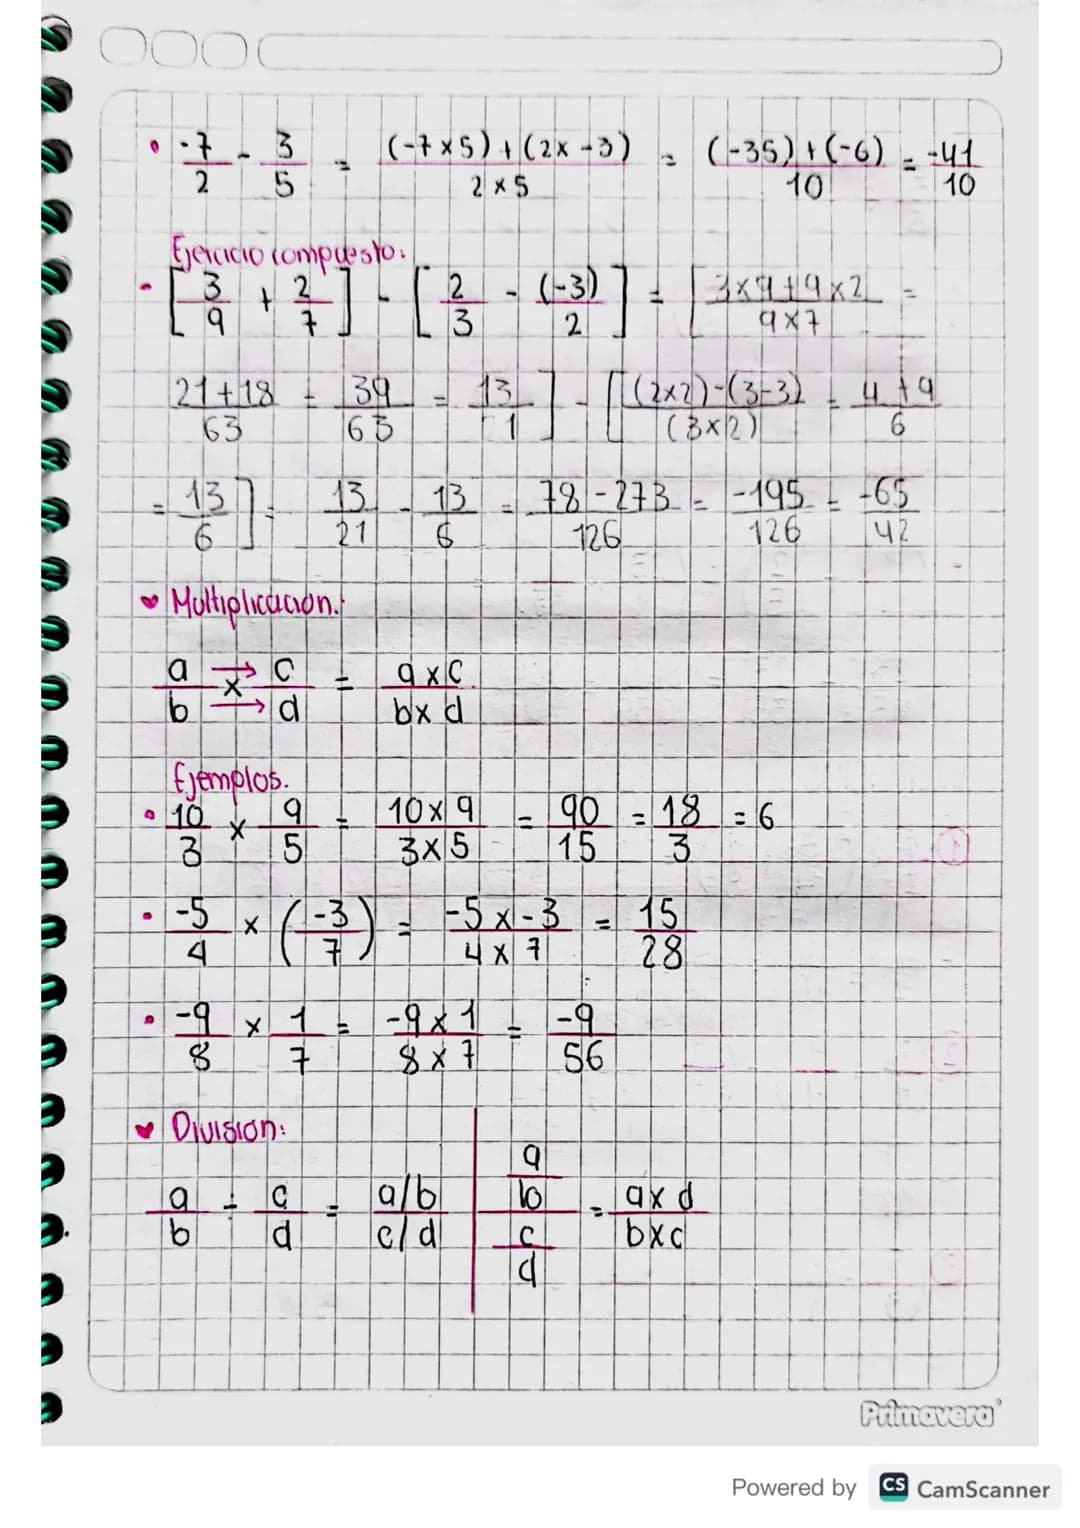 -7/2 - 3/5 = (-7 x 5) + (2 x -3) / 2 x 5 = (-35) + (-6) / 10 = -41/10
Ejercicio compuesto:
[3/9 + 2/7] - [2/3 - (-3)/2] = [3x9+9x2 / 9x7 =
21+18/63 = 39/63 = 13/1] - [(2x2)-(3-3) / (3x2) = 4+9/6
= 13/6] = 13/21 - 13/6 = 78-273/126 = -195/126 = -65/42
Multiplicacion:
a/b x c/d = a x c / b x d
Ejemplos.
10/3 x 9/5 = 10x9 / 3x5 = 90/15 = 18/3 = 6
-5/4 x (-3/7) = -5 x -3 / 4 x 7 = 15/28
-9/8 x 1/7 = -9 x 1 / 8 x 7 = -9/56
Division:
a/b ÷ c/d = a/b / c/d
a/b / c/d = a x d / b x c
Primavera
Powered by CS CamScanner